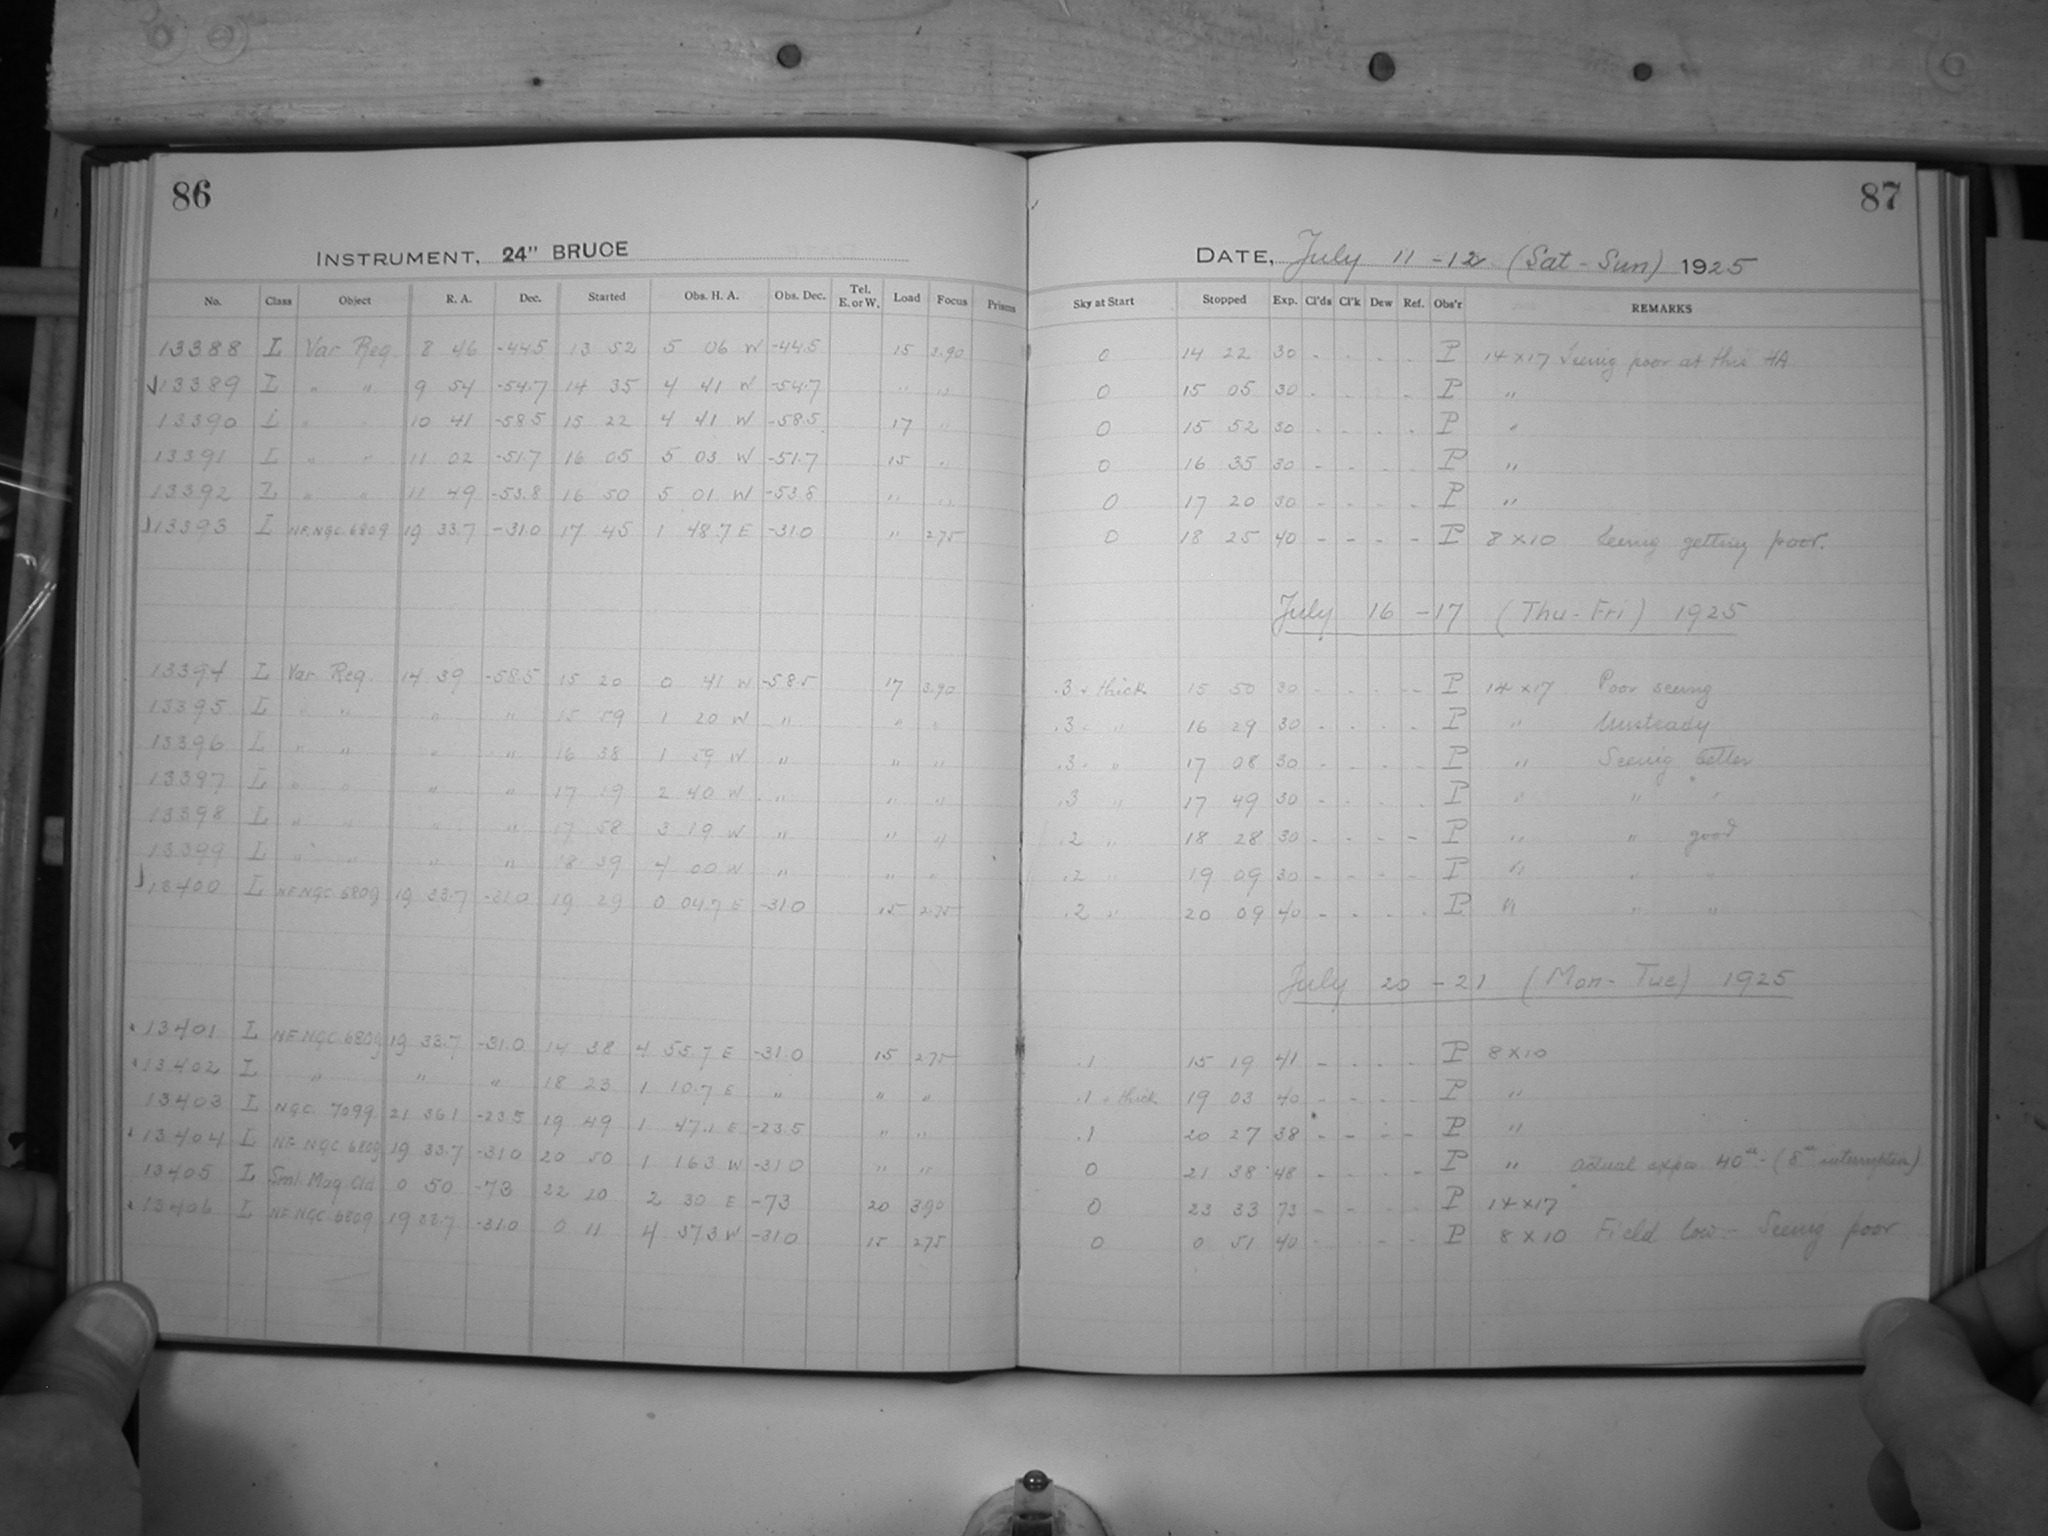 86
87
INSTRUMENT, 24" BRUCE
DATE, July 11-12 (Sat-Sun) 1925
No. Class Object R. A. Dec. Started Obs. H. A. Obs. Dec. Tel. E. or W. Load Focus Prisms Sky at Start Stopped Exp. Cl'ds Cl'k Dew Ref. Obs'r REMARKS
13388 I Var Reg. 8 46 -44.5 13 52 5 06 W -44.5 15 3.90 0 14 22 30 - - - - P 14x17 Seeing poor at this HA
√13389 I " " 9 54 -54.7 14 35 4 41 W -54.7 " " 0 15 05 30 - - - - P "
13390 I " " 10 41 -58.5 15 22 4 41 W -58.5 17 " 0 15 52 30 - - - - P "
13391 I " " 11 02 -51.7 16 05 5 03 W -51.7 15 " 0 16 35 30 - - - - P "
13392 I " " 11 49 -53.8 16 50 5 01 W -53.8 " " 0 17 20 30 - - - - P "
√13393 I NF.NGC.6809 19 33.7 -31.0 17 45 1 48.7 E -31.0 " 2.75 0 18 25 40 - - - - P 8x10 Seeing getting poor.
July 16-17 (Thu-Fri) 1925
13394 I Var Reg. 14 39 -58.5 15 20 0 41 W -58.5 17 3.90 .3 + thick 15 50 30 - - - - P 14x17 Poor seeing
13395 I " " " " 15 59 1 20 W " " " .3 + " 16 29 30 - - - - P " Unsteady
13396 I " " " " 16 38 1 59 W " " " .3 + " 17 08 30 - - - - P " Seeing better
13397 I " " " " 17 19 2 40 W " " " .3 " 17 49 30 - - - - P " " "
13398 I " " " " 17 58 3 19 W " " " .2 " 18 28 30 - - - - P " " good
13399 I " " " " 18 39 4 00 W " " " .2 " 19 09 30 - - - - P " " "
√13400 I NF NGC 6809 19 33.7 -31.0 19 29 0 04.7 E -31.0 15 2.75 .2 " 20 09 40 - - - - P " " "
July 20-21 (Mon-Tue) 1925
13401 I NF NGC 6809 19 33.7 -31.0 14 38 4 55.7 E -31.0 15 2.75 .1 15 19 41 - - - - P 8x10
13402 I " " " 18 23 1 10.7 E " " " .1 + thick 19 03 40 - - - - P "
13403 I NGC 7099 21 36.1 -23.5 19 49 1 47.1 E -23.5 " " .1 20 27 38 - - - - P "
13404 I NF NGC 6809 19 33.7 -31.0 20 50 1 16.3 W -31.0 " " 0 21 38 48 - - - - P " actual expo 40m (8m interruption)
13405 I Sml. Mag. Cld 0 50 -73 22 20 2 30 E -73 20 3.90 0 23 33 73 - - - - P 14x17
13406 I NF NGC 6809 19 33.7 -31.0 0 11 4 37.3 W -31.0 15 2.75 0 0 51 40 - - - - P 8x10 Field low - Seeing poor